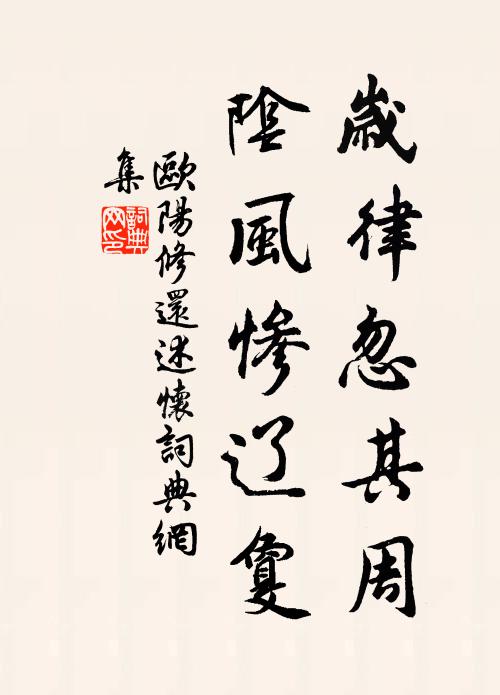 歲律忽其周
陰風慘辽夐
歐陽修還述懷詞典網
集
詞典
网印